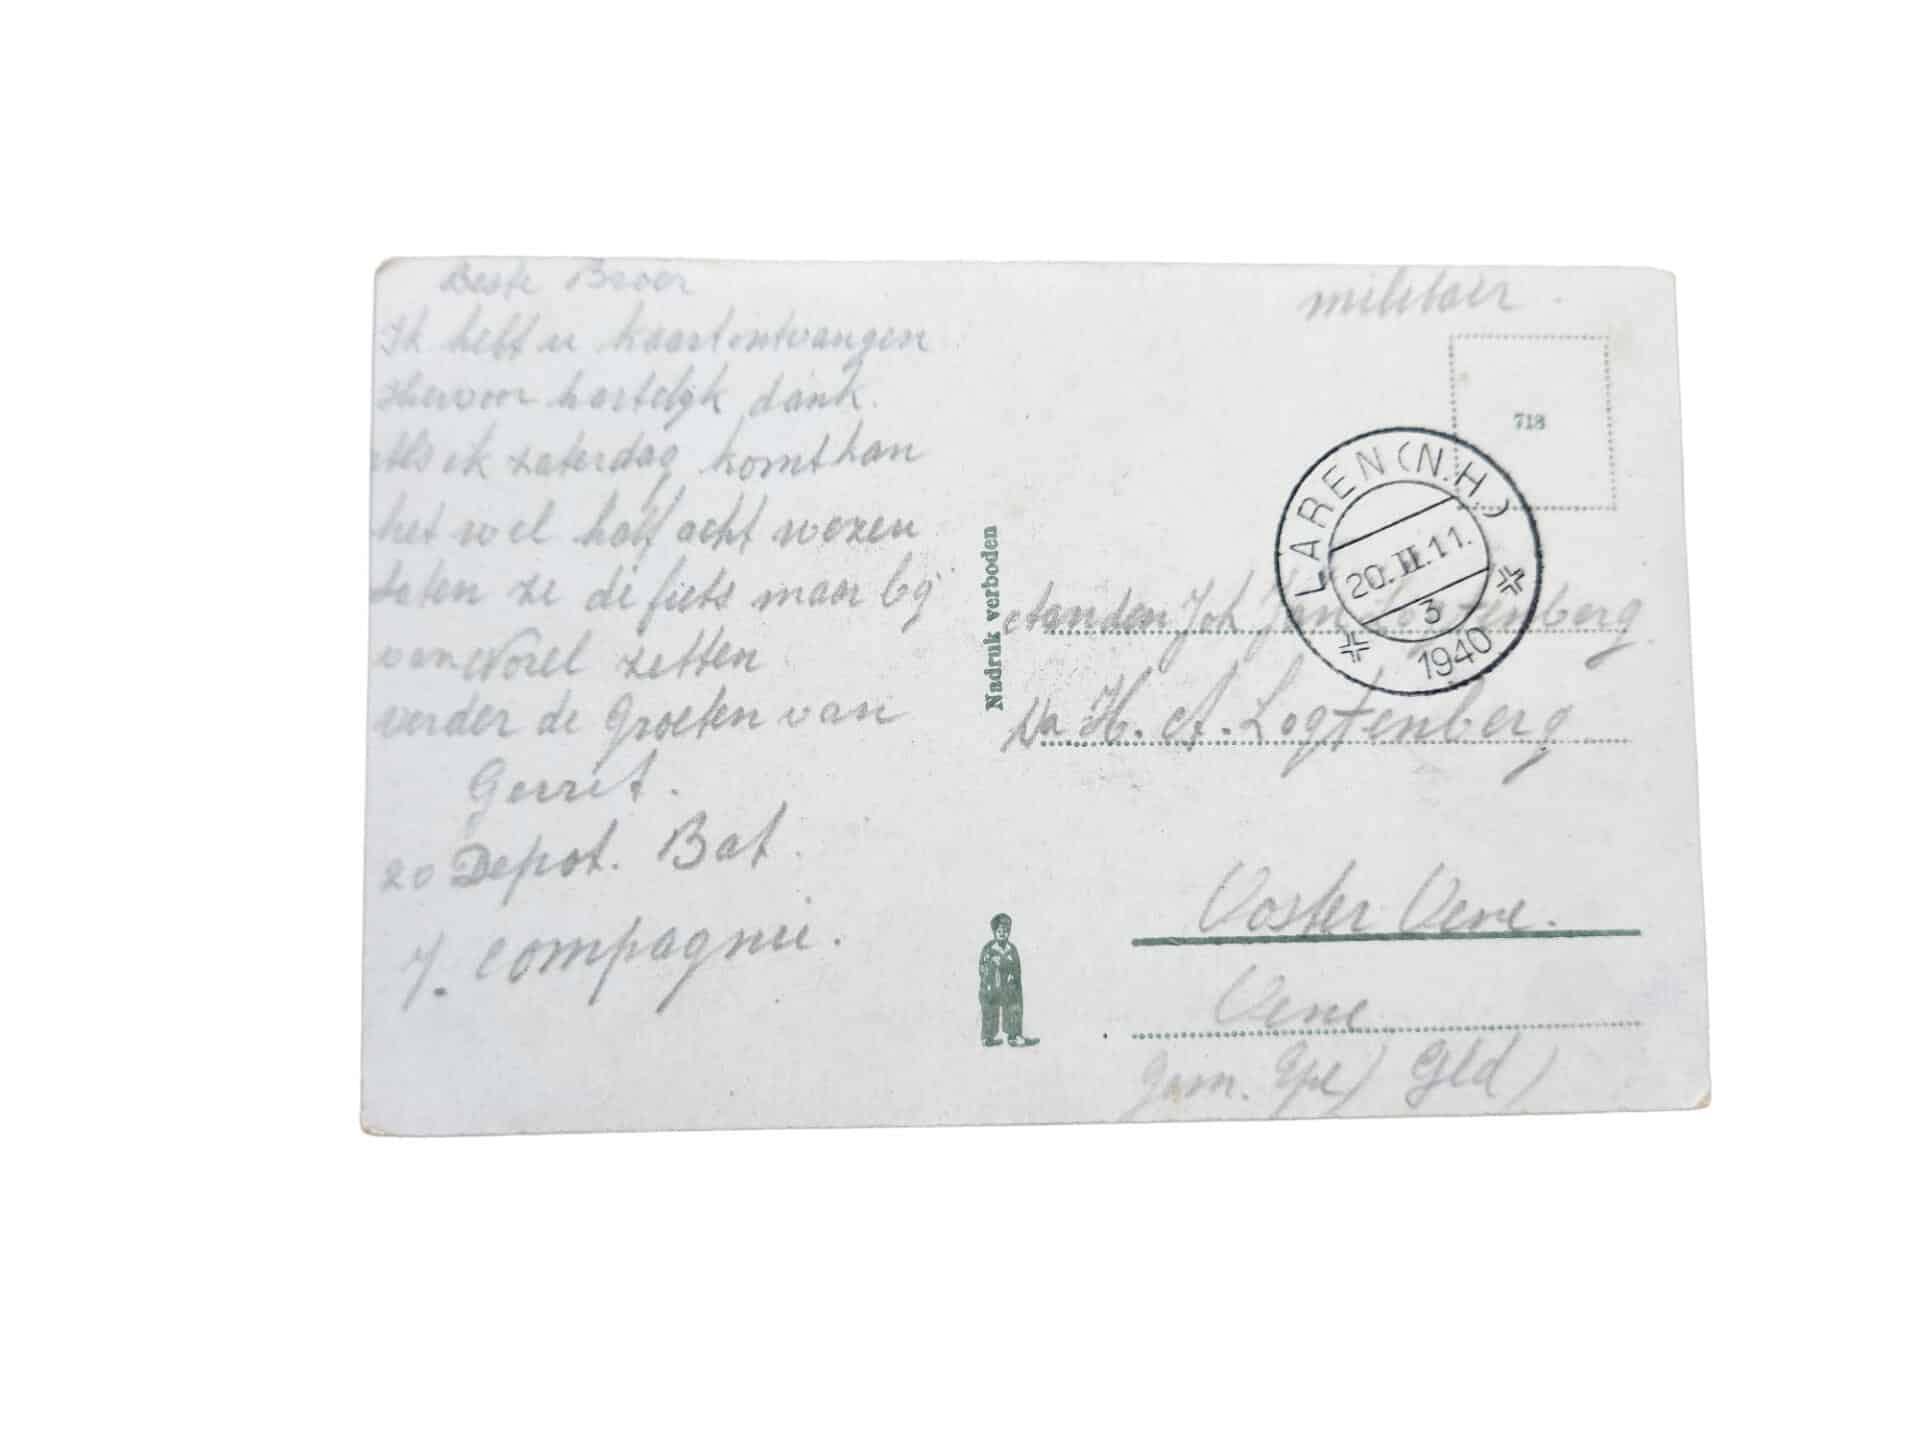 Beste Broer
Ik heft u kaart ontvangen
Hiervoor hartelijk dank.
Als ik zaterdag komt kan
het wel half acht wezen
laten ze de fiets maar bij
van Norel zetten
verder de groeten van
Gerrit.
20 Depot. Bat.
7. compagnie.
Nadruk verboden
militair.
718
LAREN (N.H.)
20.II.11.
3
1940
Aan den Joh Jan Logtenberg
H. A. Logtenberg
Ooster Vene.
Vene
Gem. Epe (Gld)